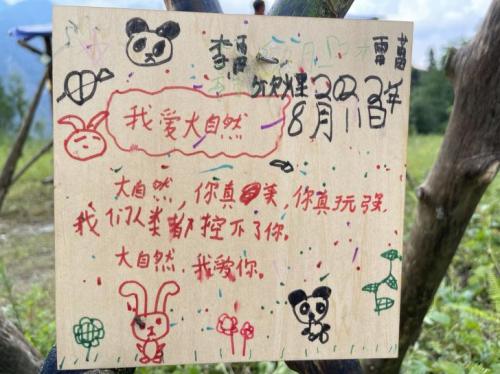 2023年
8月11日
我爱大自然
大自然,你真美,你真玩强,
我们人类都控不了你。
大自然,我爱你。